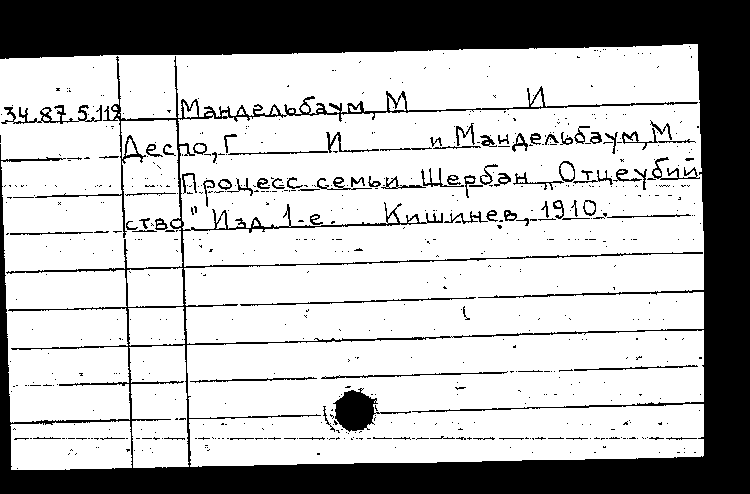 34.87.5.112 Мандельбаум, М И
Деспо, Г И и Мандельбаум, М
Процесс семьи Шербан „Отцеубий
ство." Изд. 1-е. Кишинев, 1910.